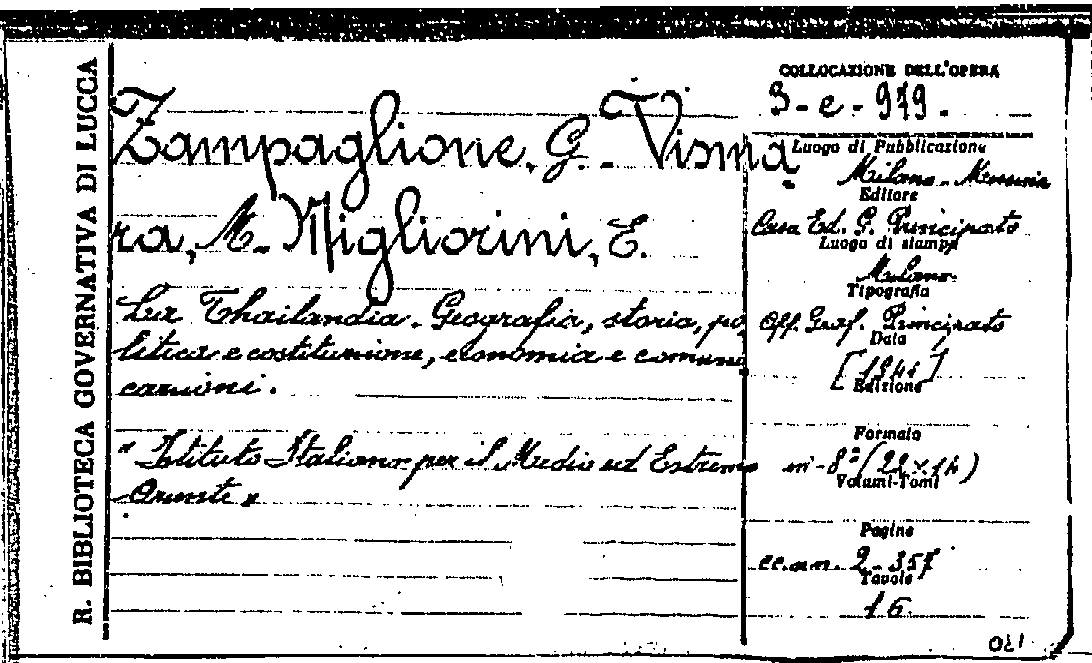 R. BIBLIOTECA GOVERNATIVA DI LUCCA
Zampaglione, G. - Visma-
ra, M. - Migliorini, E.
La Thailandia. Geografia, storia, po
litica e costituzione, economia e comuni
cazioni.
"Istituto Italiano per il Medio ed Estremo
Oriente"
COLLOCAZIONE DELL'OPERA
3-e-979.
Luogo di Pubblicazione
Milano - Messina
Editore
Casa Ed. G. Principato
Luogo di stampa
Milano
Tipografia
Off. Graf. Principato
Data
Edizione
Formato
in-8° (22x14)
Volumi-Tomi
Pagine
cc.nn. 2-357
Tavole
16